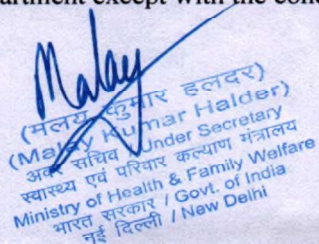 artment except with the conc
Malay
(मलय कुमार हलदर)
(Malay Kumar Halder)
अवर सचिव / Under Secretary
स्वास्थ्य एवं परिवार कल्याण मंत्रालय
Ministry of Health & Family Welfare
भारत सरकार / Govt. of India
नई दिल्ली / New Delhi